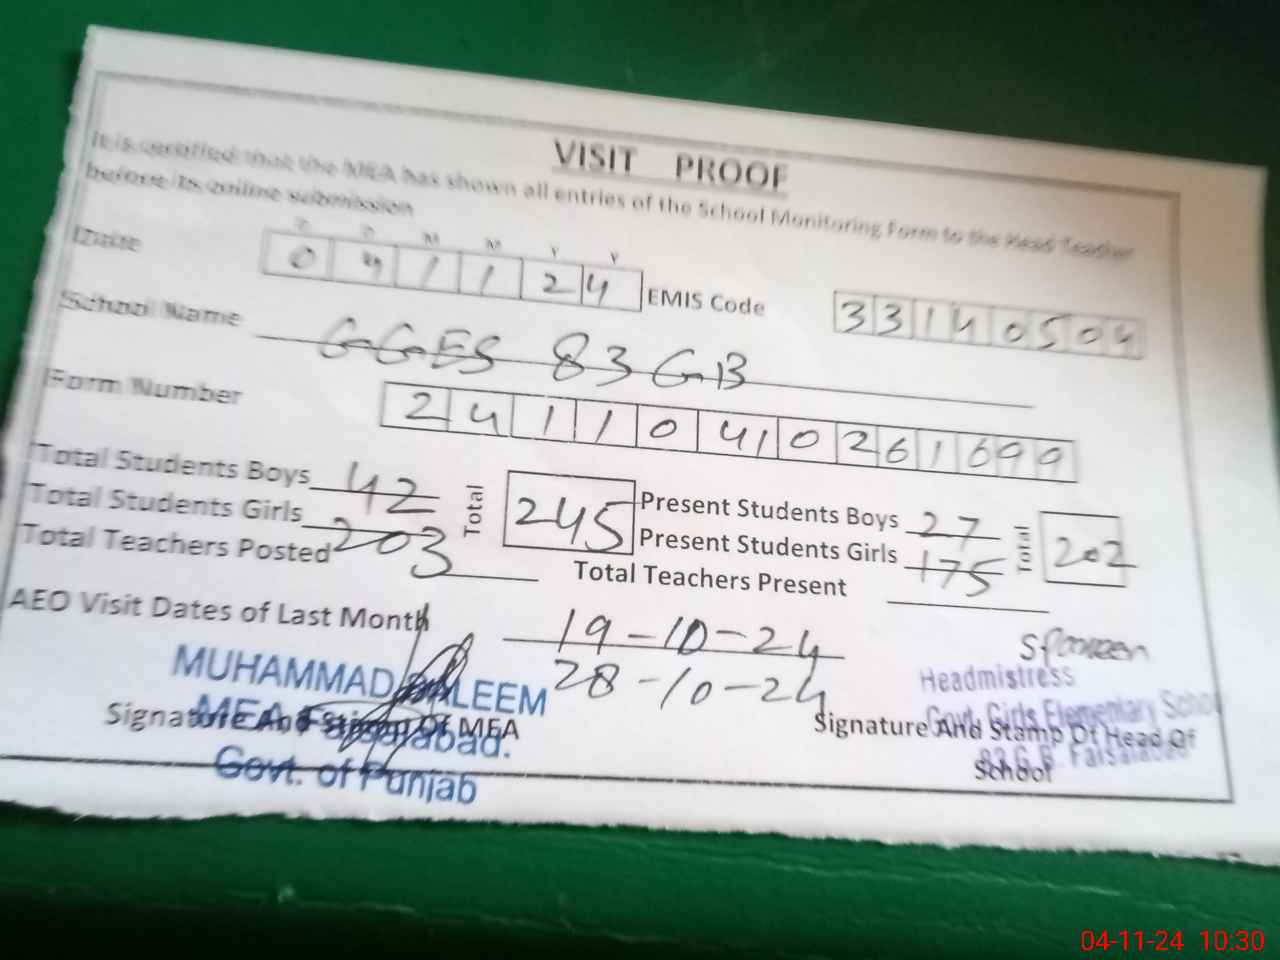 VISIT PROOF
It is certified that the MEA has shown all entries of the School Monitoring Form to the Head Teacher
before its online submission
Date D D M M Y Y
0 4 1 1 2 4 EMIS Code 3 3 1 4 0 5 0 4
School Name G.G.ES 83 G.B
Form Number 2 4 1 1 0 4 1 0 2 6 1 6 9 9
Total Students Boys 42 Total 245 Present Students Boys 27 Total 202
Total Students Girls 203 Present Students Girls 175
Total Teachers Posted Total Teachers Present
AEO Visit Dates of Last Month 19-10-24
28-10-24
MUHAMMAD SALEEM
MEA Faisalabad.
Govt. of Punjab
Signature And Stamp Of MEA
Headmistress
Govt. Girls Elementary School
83 G.B. Faisalabad
Signature And Stamp Of Head Of
School
04-11-24 10:30